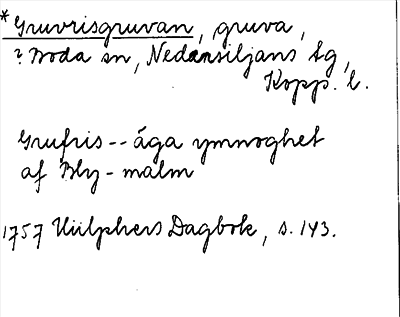 *Gruvrisgruvan, gruva,
? Boda sn, Nedansiljans tg,
Kopp. l.
Grufris -- äga ymnoghet
af Bly-malm
1757 Hülphers Dagbok, s. 143.